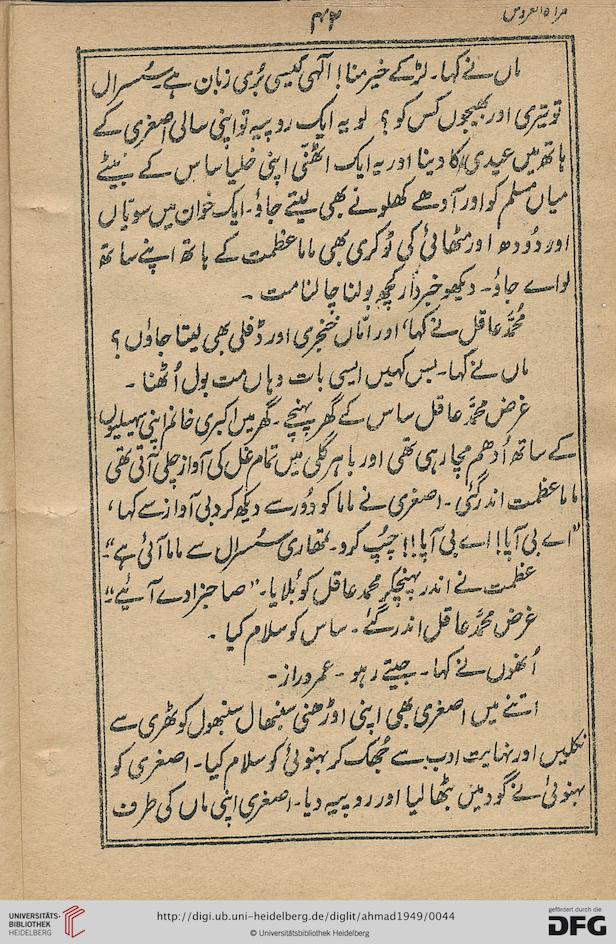 مراۃ العروس
۴۲
ماں نے کہا۔ لڑکے خیر منا! الٰہی کیسی بُری زبان ہے۔ سُسرال
تو تیری اور بھیجوں کس کو؟ لو یہ ایک روپیہ تو اپنی سالی اصغری کے
ہاتھ میں عیدی کا دینا اور یہ ایک اٹھنّی اپنی خلیا ساس کے بیٹے
میاں مسلم کو اور آدھے کھلونے بھی لیتے جاؤ۔ ایک خوان میں سویّاں
اور دُودھ اور مٹھائی کی ٹوکری بھی ماما عظمت کے ہاتھ اپنے ساتھ
لواے جاؤ۔ دیکھو خبردار کچھ بولنا چالنا مت ۔
مُحمّد عاقل نے کہا، اور امّاں خنجری اور ڈفلی بھی لیتا جاؤں؟
ماں نے کہا۔ بس کہیں ایسی بات وہاں مت بول اُٹھنا ۔
غرض محمّد عاقل ساس کے گھر پہنچے۔ گھر میں اکبری خانم اپنی سہیلیوں
کے ساتھ اُدھم مچا رہی تھی اور باہر گلی میں تمام غل کی آواز چلی آتی تھی
ماما عظمت اندر گئی۔ اصغری نے ماما کو دُور سے دیکھ کر دبی آواز سے کہا،
"اے بی آپا! اے بی آپا!! چُپ کرو۔ تمھاری سُسرال سے ماما آئی ہے"۔
عظمت نے اندر پہنچکر محمد عاقل کو بُلایا۔ "صاحبزادے آیئے"۔
غرض محمّد عاقل اندر گئے۔ ساس کو سلام کیا ۔
اُنھوں نے کہا۔ جیتے رہو ۔ عمر دراز۔
اتنے میں اصغری بھی اپنی اوڑھنی سنبھال سنبھول کوٹھری سے
نکلیں اور نہایت ادب سے جُھک کر بہنوئی کو سلام کیا۔ اصغری کو
بہنوئی نے گود میں بٹھا لیا اور روپیہ دیا۔ اصغری اپنی ماں کی طرف
UNIVERSITÄTS-
BIBLIOTHEK
HEIDELBERG
http://digi.ub.uni-heidelberg.de/diglit/ahmad1949/0044
© Universitätsbibliothek Heidelberg
gefördert durch die
DFG